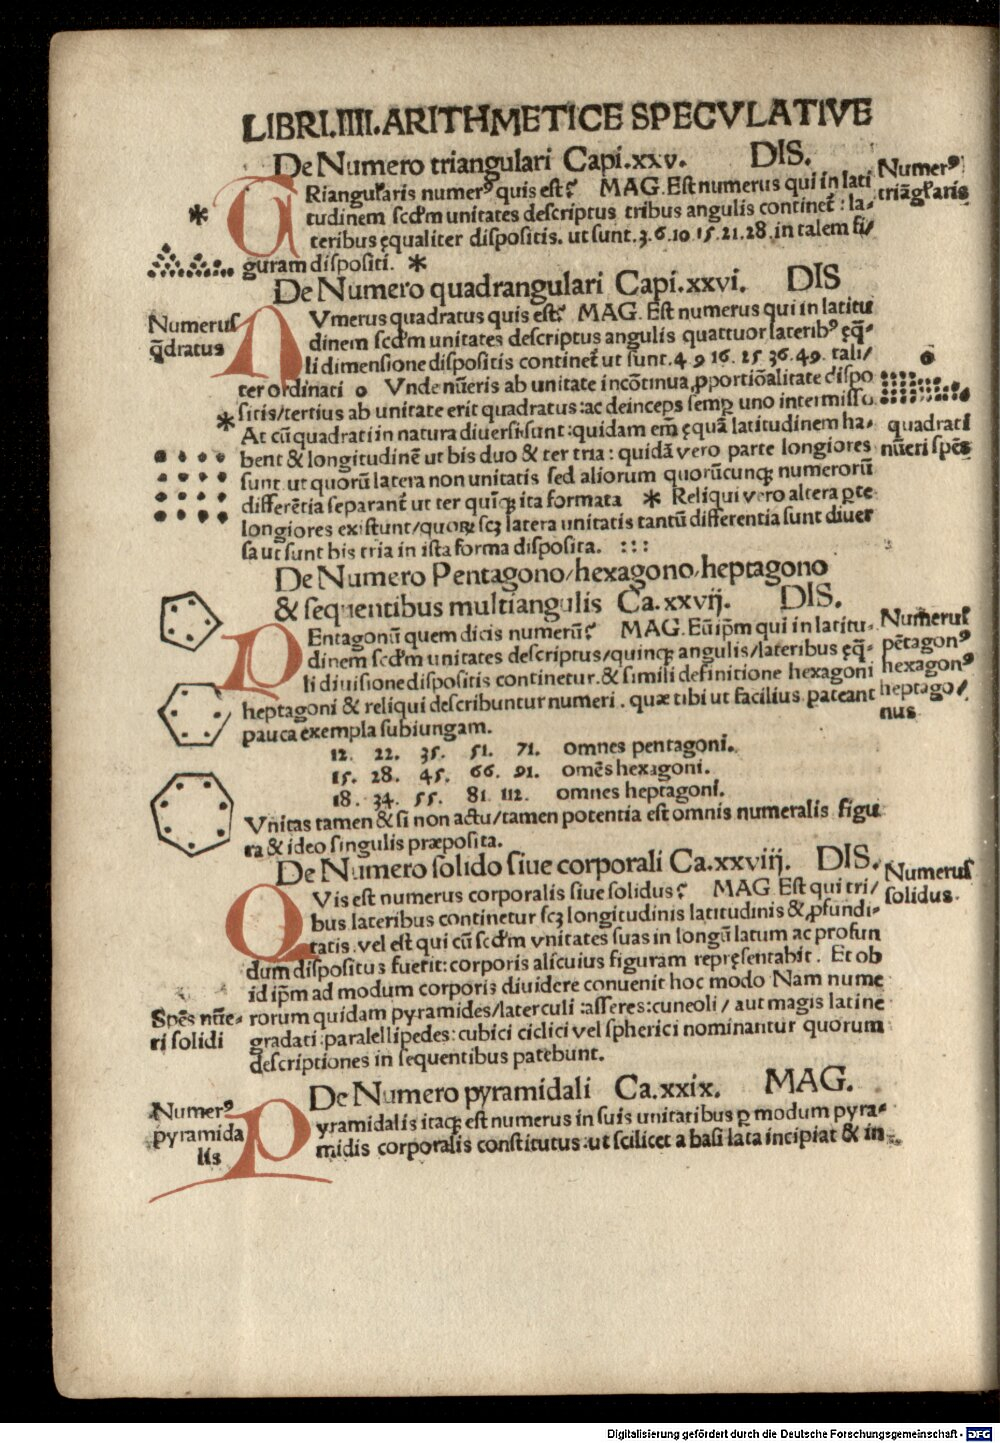 LIBRI.IIII.ARITHMETICE SPECVLATIVE
De Numero triangulari Capi.xxv. DIS.
Numerꝰ
triãgl'aris
TRiangul'aris numerꝰ quis est? MAG. Est numerus qui in lati
tudinem scd'm unitates descriptus tribus angulis continet̃ : la-
teribus ęqualiter dispositis. ut sunt .3.6.10.15.21.28. in talem fi/
guram dispositi. *
De Numero quadrangulari Capi.xxvi. DIS
Numerus
q̃dratus
NVmerus quadratus quis est? MAG. Est numerus qui in latitu
dinem scd'm unitates descriptus angulis quattuor lateribꝰ ęq̃-
li dimensione dispositis continet̃ ut sunt .4 9 16. 25 36.49. tali/
ter ordinati o Vnde nũeris ab unitate incõtinua ꝓportiõalitate dispo
sitis/tertius ab unitate erit quadratus: ac deinceps semꝑ uno intermisso
* At cũ quadrati in natura diuersi sunt: quidam em̃ ęquã latitudinem ha-
bent & longitudinẽ ut bis duo & ter tria: quidã vero parte longiores
sunt. ut quorũ latera non unitatis sed aliorum quorũcunqꝫ numerorũ
differẽtia separant̃ ut ter quĩqꝫ ita formata * Reliqui vero altera ꝑte
longiores existunt/quoꝝ scꝫ latera unitatis tantũ differentia sunt diuer
sa ut sunt bis tria in ista forma disposita. : : :
quadrati
nũeri spẽs
De Numero Pentagono/hexagono/heptagono
& sequentibus multiangulis Ca.xxvij. DIS.
PEntagonũ quem dicis numerũ? MAG. Eũ ip̃m qui in latitu-
dinem scd'm unitates descriptus/quinqꝫ angulis/lateribus ęq̃-
li diuisione dispositis continetur. & simili definitione hexagoni
heptagoni & reliqui describuntur numeri . quæ tibi ut facilius pateant
pauca exempla subiungam.
Numerus
pẽtagonꝰ
hexagonꝰ
heptago/
nus
12. 22. 35. 51. 71. omnes pentagoni.
15. 28. 45. 66. 91. omẽs hexagoni.
18. 34. 55. 81 112. omnes heptagoni.
Vnitas tamen & si non actu/tamen potentia est omnis numeralis figu
ra & ideo singulis præposita.
De Numero solido siue corporali Ca.xxviij. DIS.
Numerus
solidus.
QVis est numerus corporalis siue solidus? MAG. Est qui tri/
bus lateribus continetur scꝫ longitudinis latitudinis & ꝓfundi-
tatis. vel est qui cũ scd'm vnitates suas in longũ latum ac profun
dum dispositus fuerit: corporis alicuius figuram repręsentabit. Et ob
id ip̃m ad modum corporis diuidere conuenit hoc modo Nam nume
rorum quidam pyramides/laterculi :asseres:cuneoli / aut magis latine
gradati :paralellipedes: cubici ciclici vel spherici nominantur quorum
descriptiones in sequentibus patebunt.
Spẽs nũe-
ri solidi
De Numero pyramidali Ca.xxix. MAG.
Numerꝰ
pyramida
lis
Pyramidalis itaqꝫ est numerus in suis unitatibus ꝑ modum pyra-
midis corporalis constitutus :ut scilicet a basi lata incipiat & in-
Digitalisierung gefördert durch die Deutsche Forschungsgemeinschaft - DFG